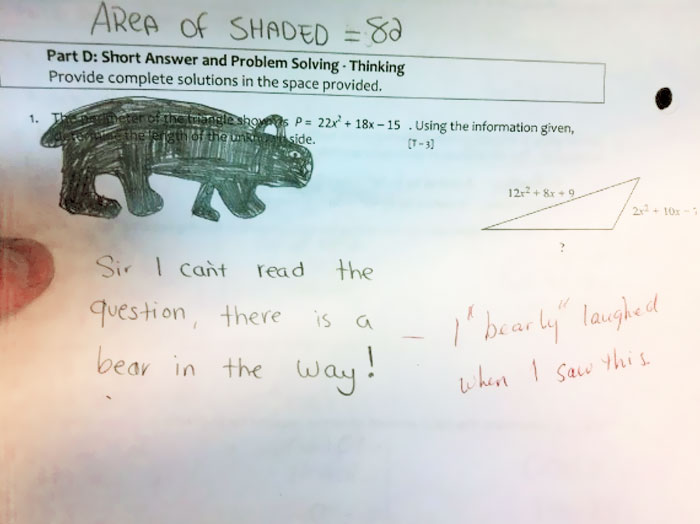 AREA OF SHADED = 82
Part D: Short Answer and Problem Solving - Thinking
Provide complete solutions in the space provided.
1. The perimeter of the triangle shown is P = 22x² + 18x – 15 . Using the information given,
determine the length of the unknown side. [T-3]
12x² + 8x + 9
2x² + 10x -
?
Sir I can't read the
question, there is a
bear in the way!
– I "bearly" laughed
when I saw this.